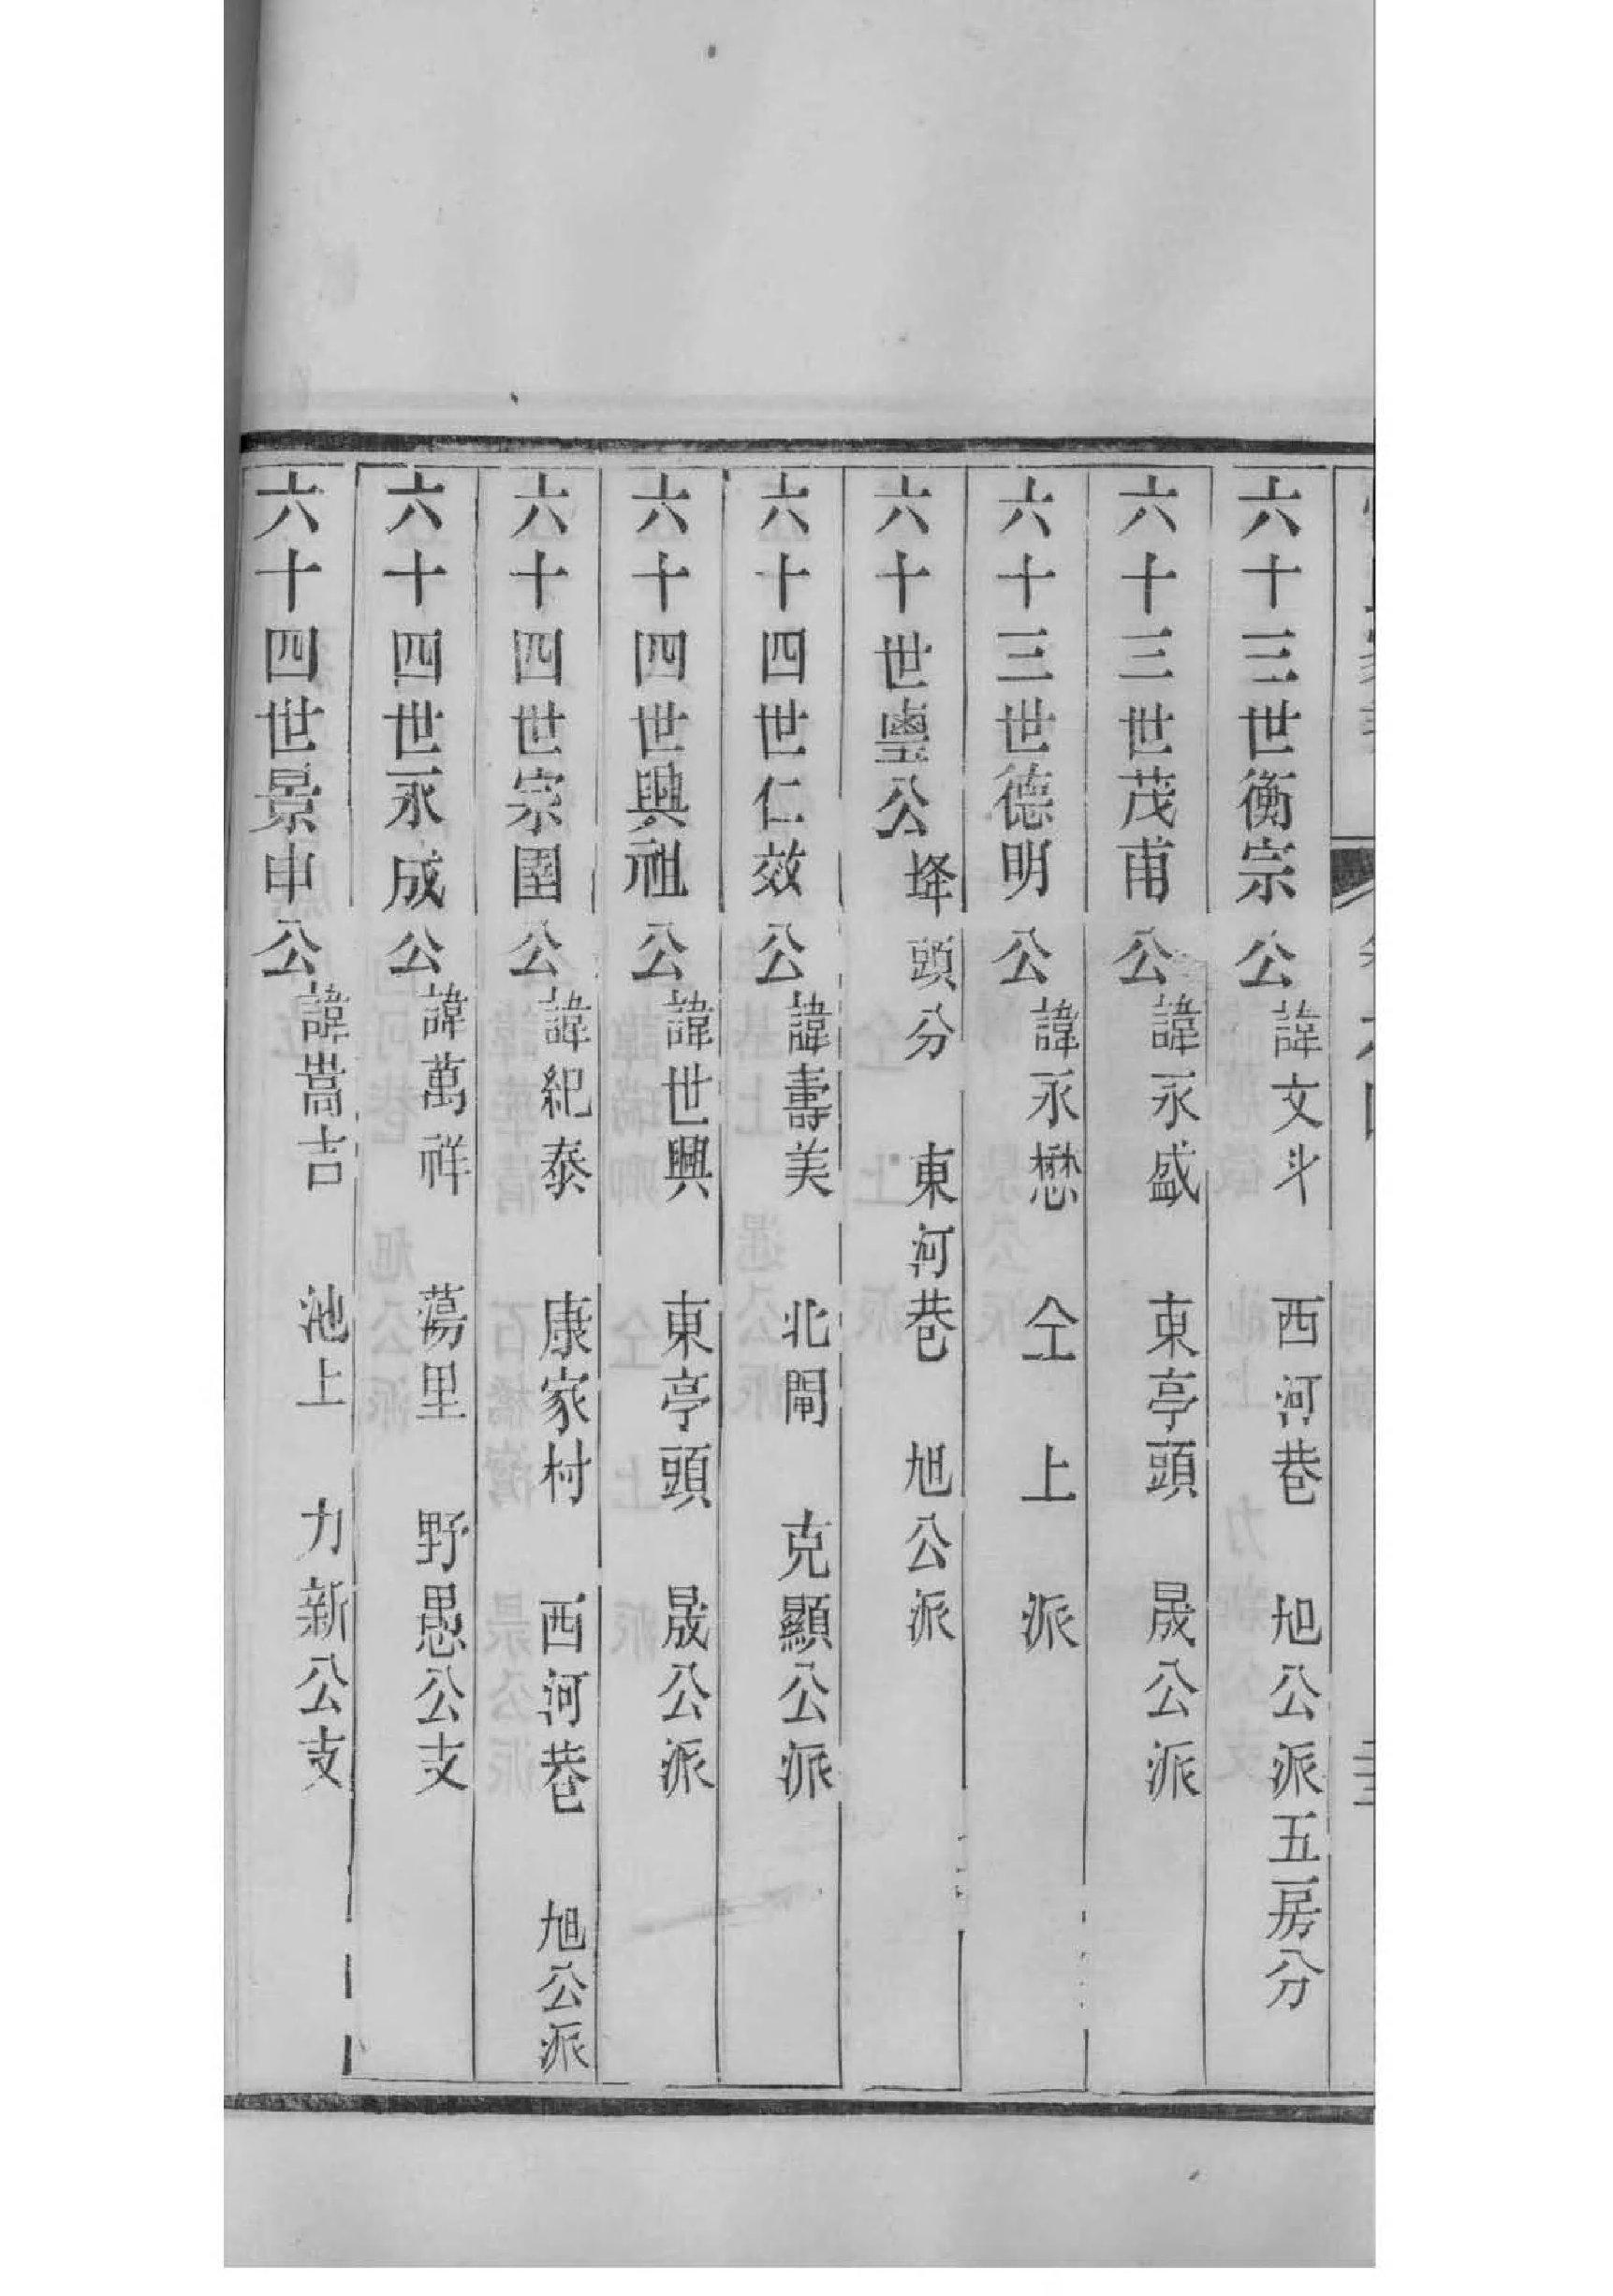 六十三世衡宗公諱文斗 西河巷 旭公派五房分
六十三世茂甫公諱永盛 東亭頭 晟公派
六十三世德明公諱永懋 仝上派
六十世璺公 垾頭分 東河巷 旭公派
六十四世仁效公諱壽美 北閘 克顯公派
六十四世興祖公諱世興 東亭頭 晟公派
六十四世宗圉公諱紀泰 康家村 西河巷 旭公派
六十四世永成公諱萬祥 蕩里 野愚公支
六十四世景申公諱嵩吉 池上 力新公支